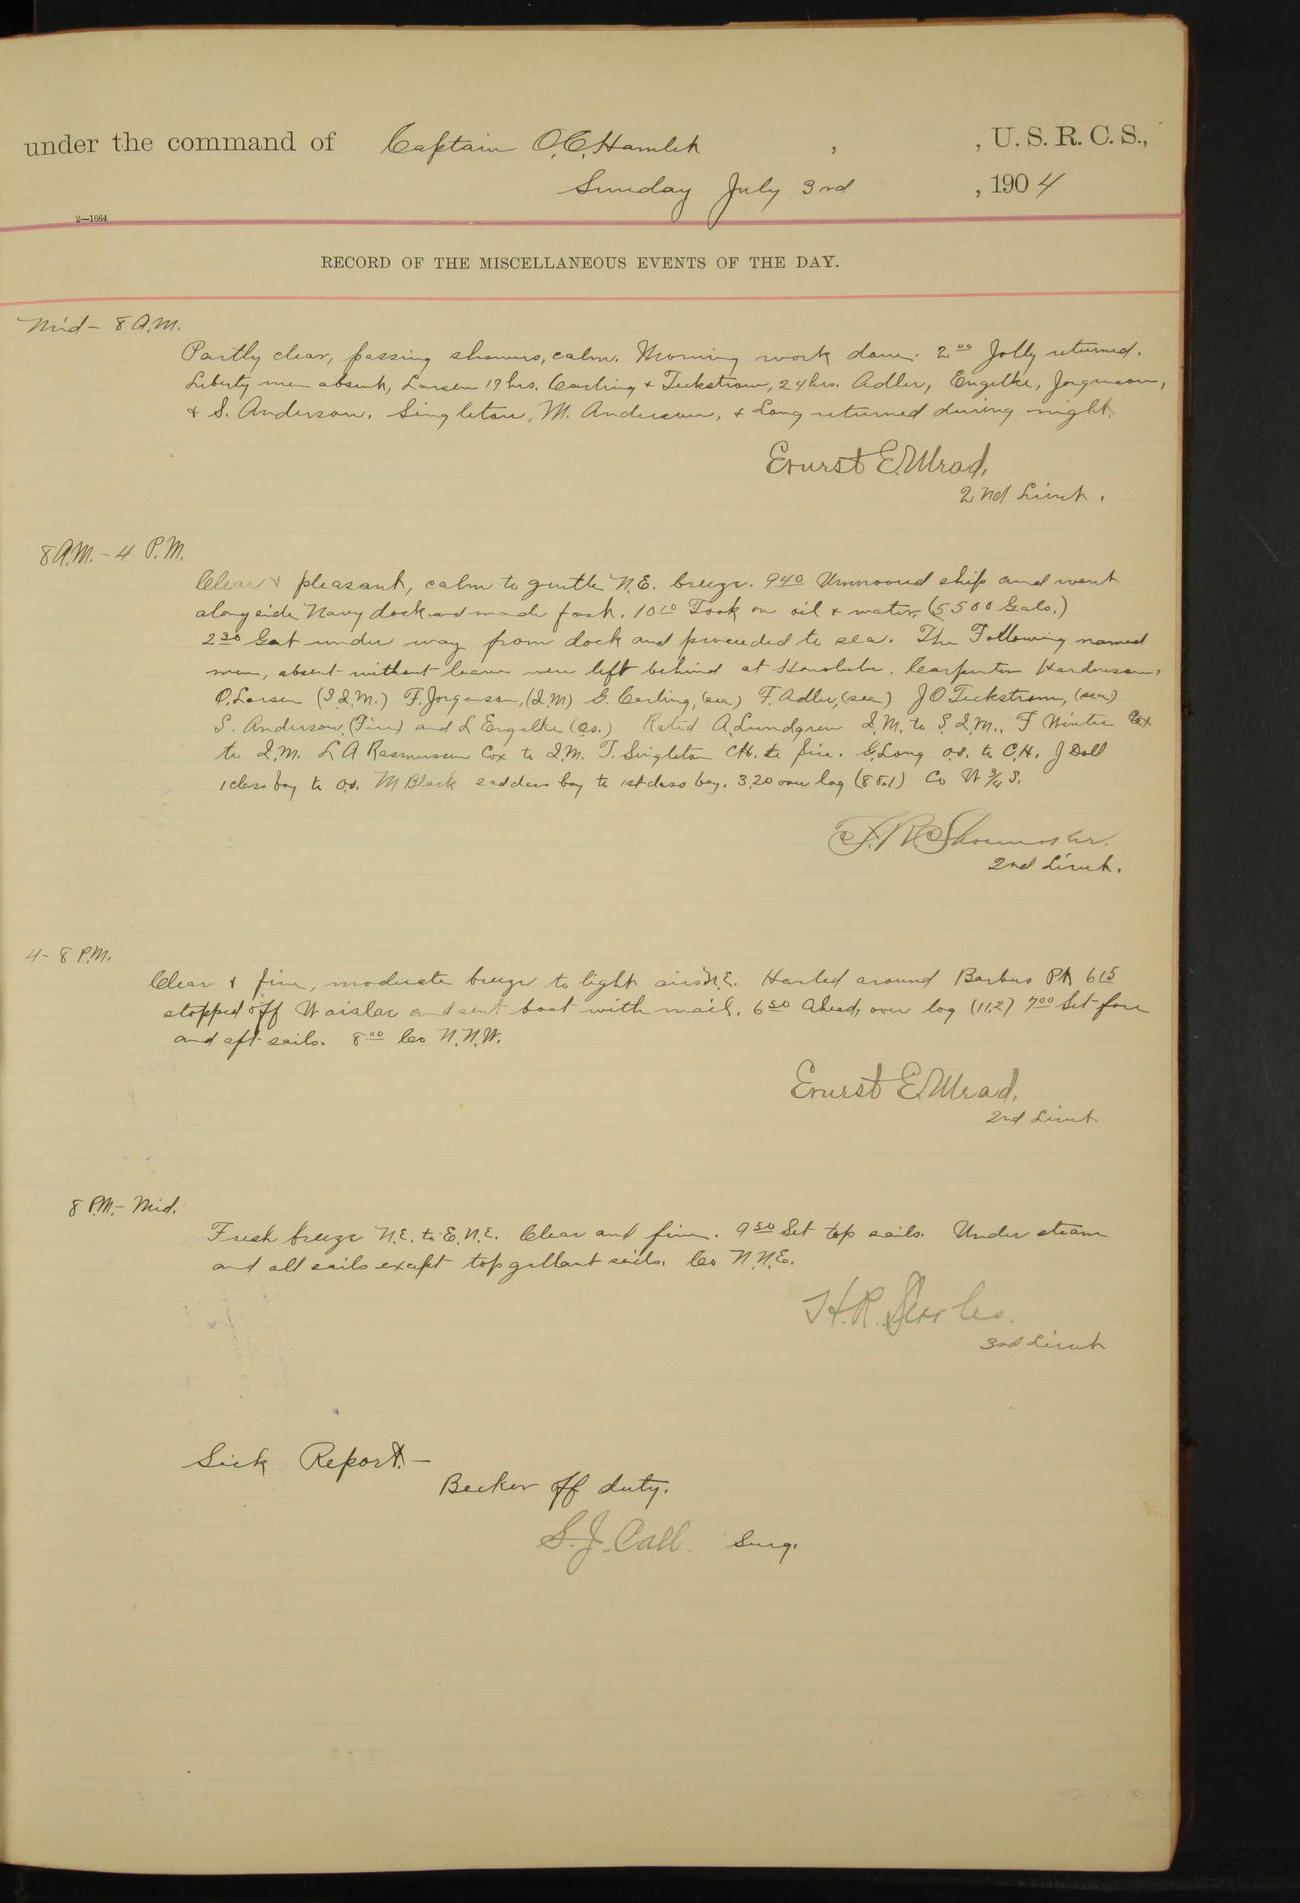 under the command of Captain O.C. Hamlet , , U.S.R.C.S.,
Sunday July 3rd , 1904
2—1664
RECORD OF THE MISCELLANEOUS EVENTS OF THE DAY.
Mid - 8 A.M.
Partly clear, passing showers, calm. Morning work done. 2 00 Jolly returned.
Liberty men absent, Larsen 19 hrs. Carling & Teckstrom, 24 hrs. Adler, Engelke, Jorgenson,
& S. Anderson. Singleton, M. Anderson, & Long returned during night.
Ernest E. Mead,
2nd Lieut.
8 A.M. - 4 P.M.
Clear & pleasant, calm to gentle N.E. breeze. 9 40 Unmoored ship and went
alongside Navy dock and made fast. 10 10 Took on oil & water, (5500 Gals.)
2 30 Got under way from dock and proceeded to sea. The Following named
men, absent without leave were left behind at Honolulu. Carpenter
O. Larsen (S.Q.M.) F. Jorgenson, (Q.M) G. Carling, (sea) F. Adler, (sea) J O Teckstrom, (sea)
S. Anderson, (Fire) and L Engelke (Os.) Rated A. Lundgren Q.M. to S.Q.M., F Winter Cox
to Q.M. L A Rasmussen Cox to Q.M. T. Singleton C.H. to fire. G. Long o.s. to C.H. J Doll
1 class boy to o.s. M Black 2nd class boy to 1st class boy. 3.20 over log Co W 3/4 S.
F. R. Shoemaker.
2nd Lieut.
4 - 8 P.M.
Clear & fine, moderate breeze to light airs N.E. Hauled around Barbers Pt. 6 15
stopped off Waialae and sent boat with mail. 6 50 Ahead, over log (11.2) 7 00 Set fore
and aft sails. 8 00 Co N.N.W.
Ernest E. Mead,
2nd Lieut
8 P.M. - Mid.
Fresh breeze N.E. to E.N.E. Clear and fine. 9 50 Set top sails. Under steam
and all sails except top gallant sails. Co N.N.E.
H.R. Searles.
3rd Lieut
Sick Report. —
Becker off duty.
S. J. Call Surg.